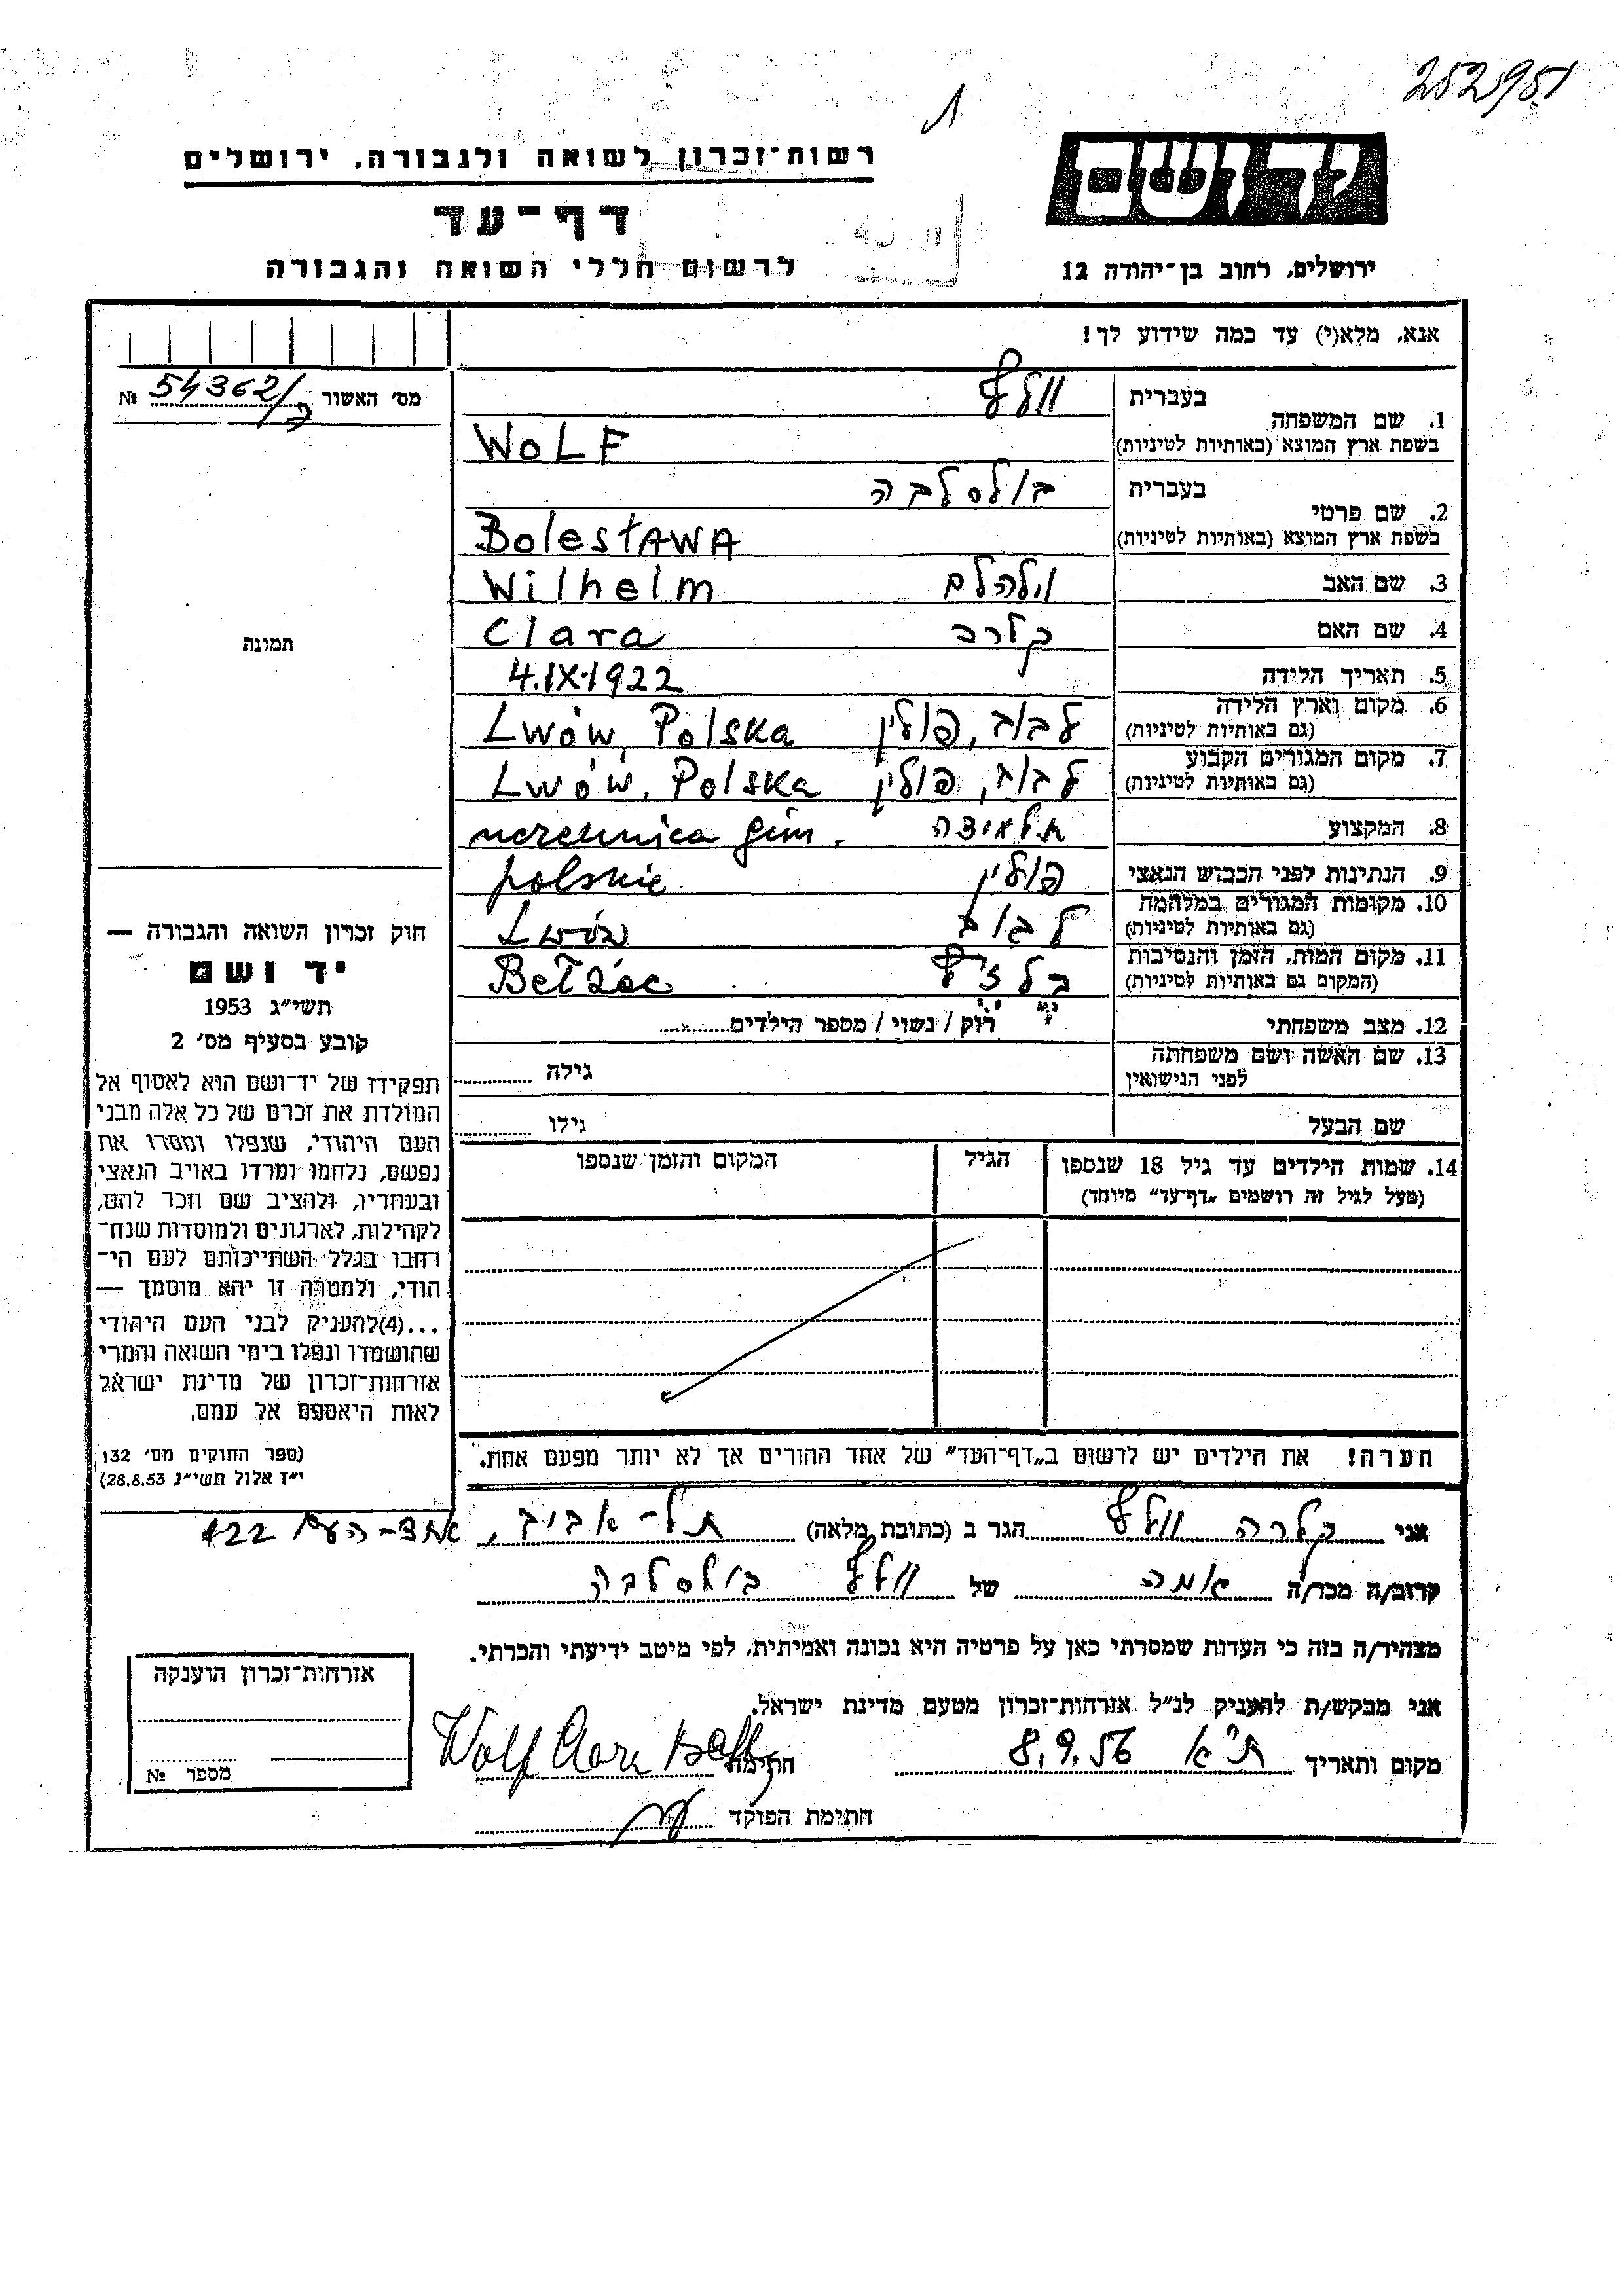 252951
רשות־זכרון לשואה ולגבורה. ירושלים
יד ושם
דף־עד
לרשום חללי השואה והגבורה
ירושלים, רחוב בן־יהודה 12
אנא, מלא(י) עד כמה שידוע לך!
מס׳ האשור 54362/ №
1. שם המשפחה
בעברית וולף
בשפת ארץ המוצא (באותיות לטיניות) WOLF
2. שם פרטי
בעברית בולסלבה
בשפת ארץ המוצא (באותיות לטיניות) BolesłAWA
3. שם האב וילהלם Wilhelm
4. שם האם Clara
5. תאריך הלידה 4.IX.1922
6. מקום וארץ הלידה לבוב, פולין Lwów, Polska
(גם באותיות לטיניות)
7. מקום המגורים הקבוע לבוב, פולין Lwów, Polska
(גם באותיות לטיניות)
8. המקצוע gim.
9. הנתינות לפני הכבוש הנאצי פולין polskie
10. מקומות המגורים במלחמה לבוב Lwów
(גם באותיות לטיניות)
11. מקום המות, הזמן והנסיבות
(המקום גם באותיות לטיניות) Bełżec
12. מצב משפחתי רוק / נשוי / מספר הילדים
13. שם האשה ושם משפחתה גילה
לפני הנישואין
שם הבעל גילו
14. שמות הילדים עד גיל 18 שנספו הגיל המקום והזמן שנספו
(מעל לגיל זה רושמים „דף־עד״ מיוחד)
הערה! את הילדים יש לרשום ב„דף־העד״ של אחד ההורים אך לא יותר מפעם אחת.
תמונה
חוק זכרון השואה והגבורה —
יד ושם
תשי״ג 1953
קובע בסעיף מס׳ 2
תפקידו של יד־ושם הוא לאסוף אל
המולדת את זכרם של כל אלה מבני
העם היהודי, שנפלו ומסרו את
נפשם, נלחמו ומרדו באויב הנאצי
ובעוזריו, ולהציב שם וזכר להם,
לקהילות, לארגונים ולמוסדות שנח־
רבו בגלל השתייכותם לעם הי־
הודי, ולמטרה זו יהא מוסמך —
...(4)להעניק לבני העם היהודי
שהושמדו ונפלו בימי השואה והמרי
אזרחות־זכרון של מדינת ישראל
לאות היאספם אל עמם.
(ספר החוקים מס׳ 132
י״ז אלול תשי״ג 28.8.53)
אני קלרה וולף הגר ב (כתובת מלאה) תל-אביב, אחד-העם 122
קרוב/ה מכר/ה אמה של וולף בולסלבה
מצהיר/ה בזה כי העדות שמסרתי כאן על פרטיה היא נכונה ואמיתית, לפי מיטב ידיעתי והכרתי.
אני מבקש/ת להעניק לנ״ל אזרחות־זכרון מטעם מדינת ישראל.
מקום ותאריך ת״א 8.9.56 חתימה Wolf
חתימת הפוקד
אזרחות־זכרון הוענקה
מספר №